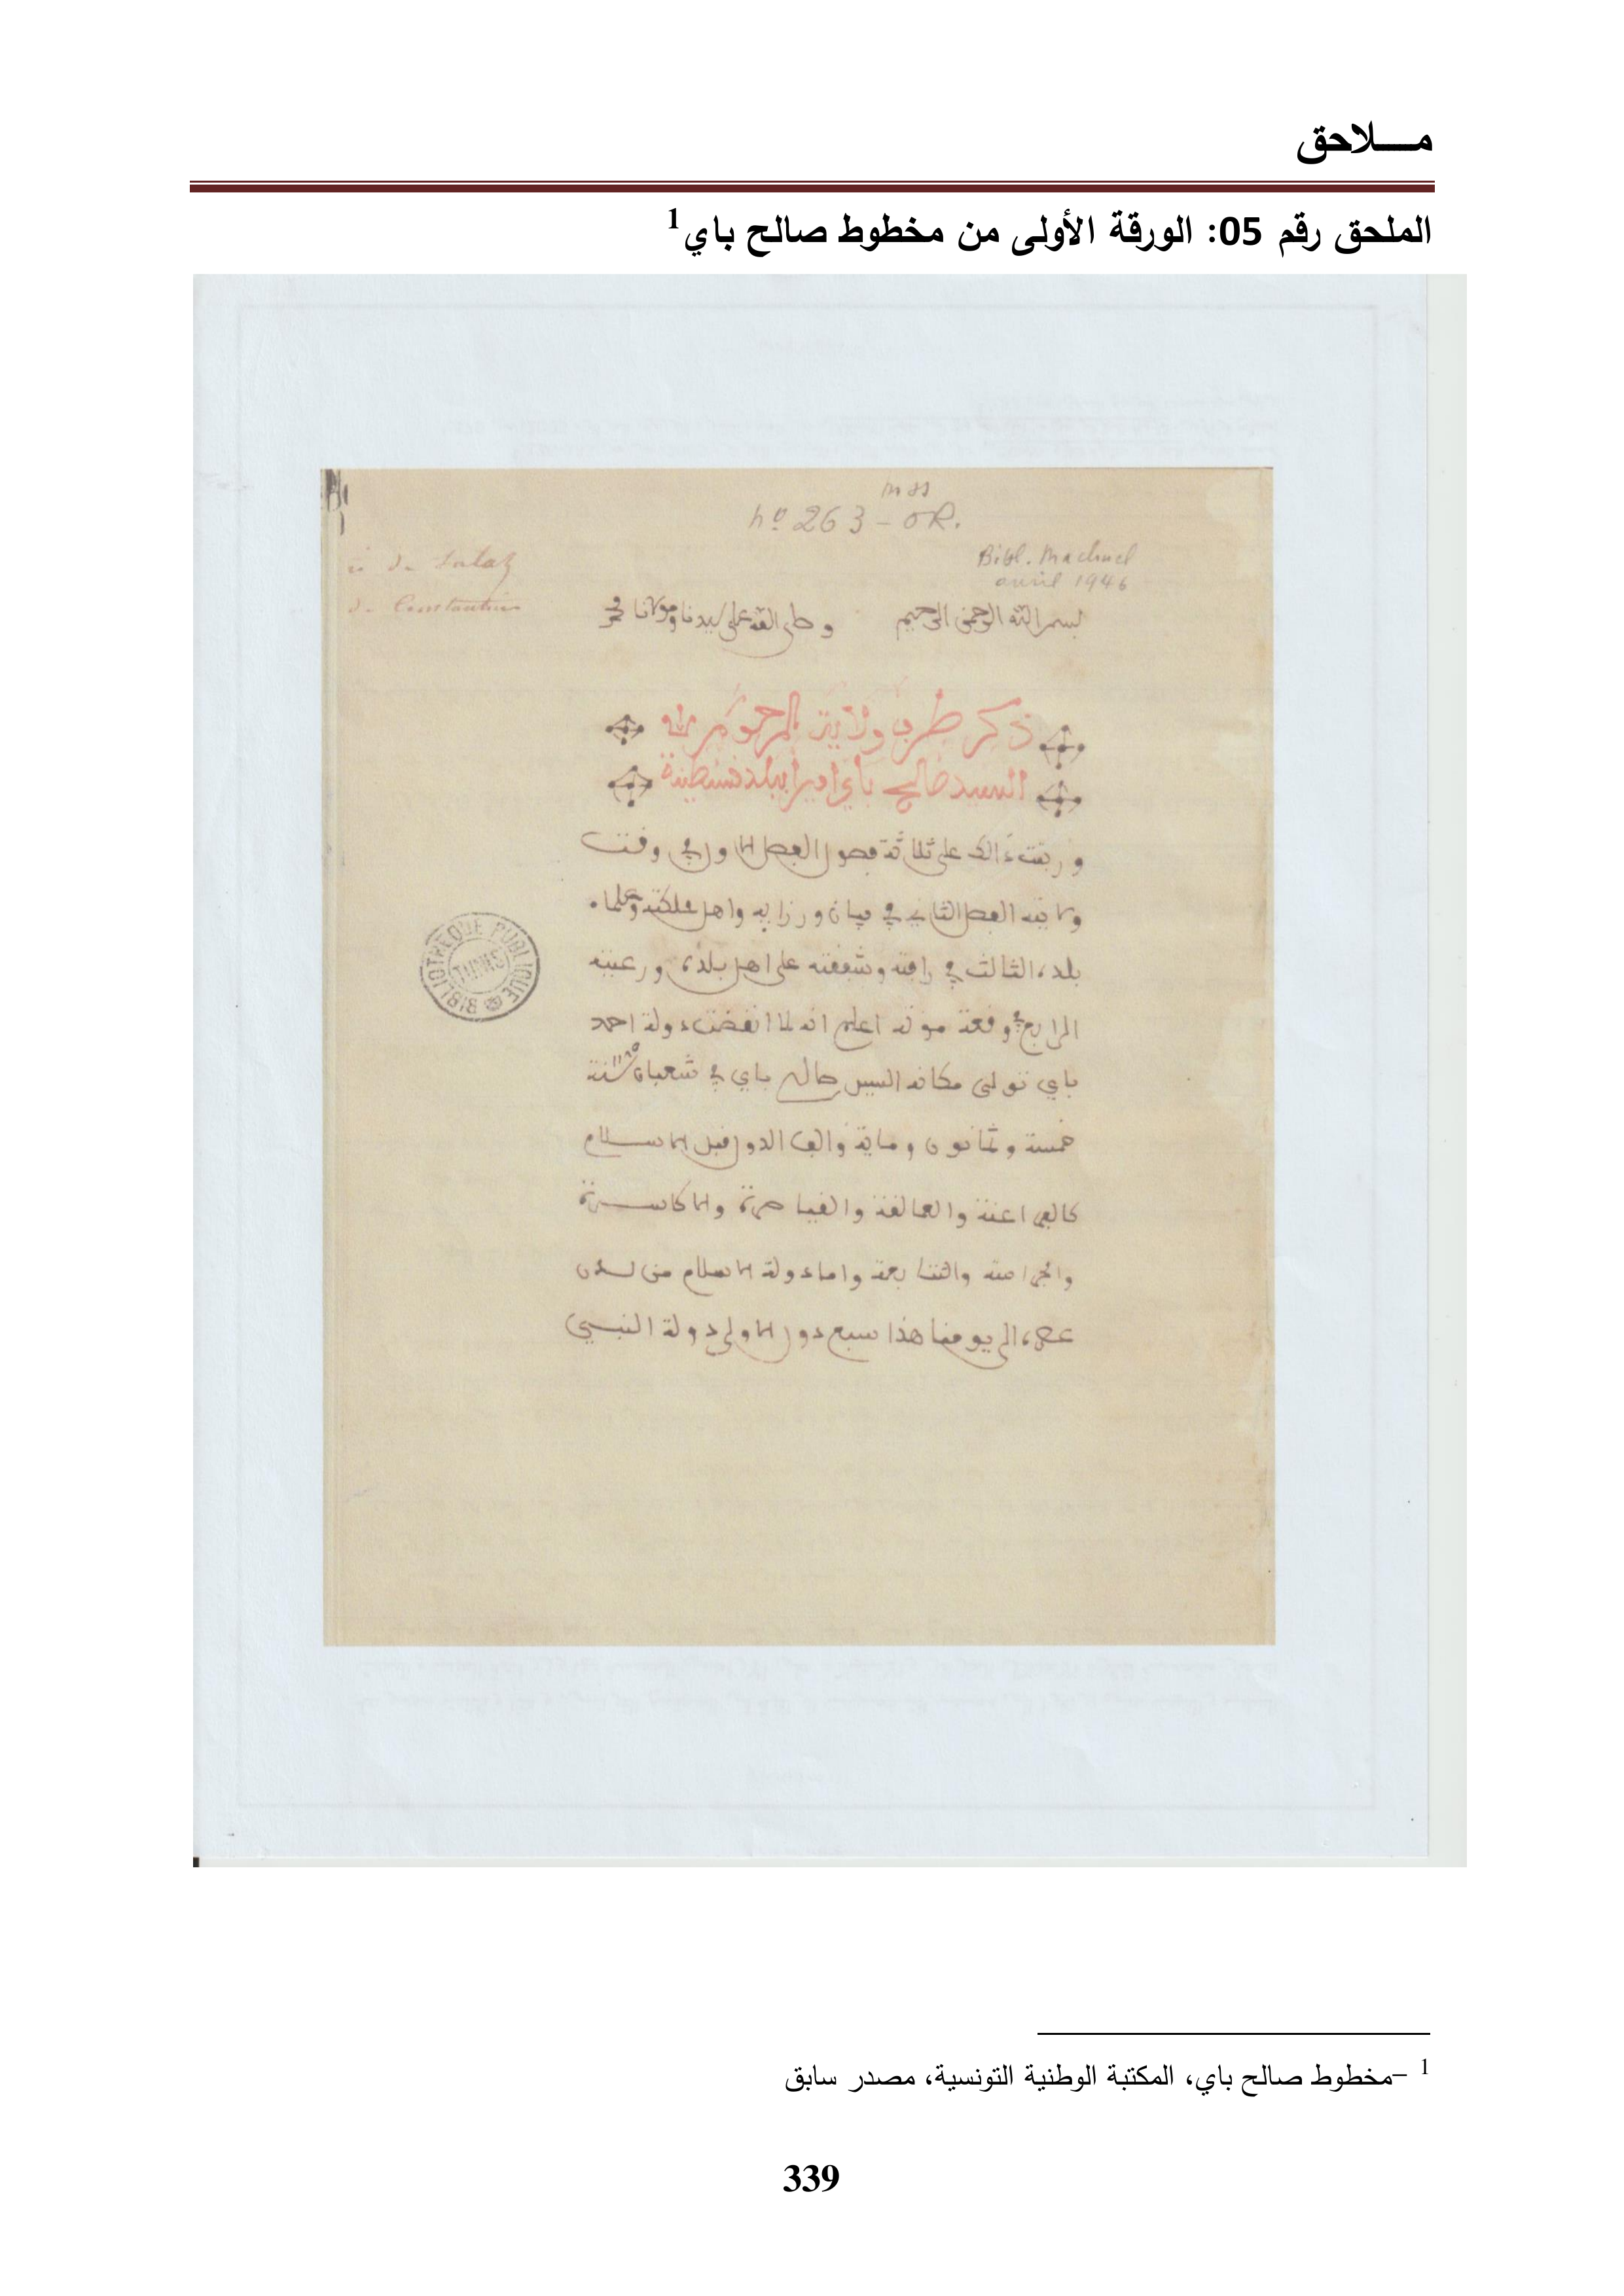 مـــلاحق
الملحق رقم 05: الورقة الأولى من مخطوط صالح باي1
mss
n° 263 - OR.
Bibl. Machuel
avril 1946
de Salah
de Constantine
بسم الله الرحمن الرحيم وصلى الله على سيدنا ومولانا محمد
ذكر طرف ولاية المرحوم لله
السيد صالح باي اميرا ببلد قسنطينة
ورتبت ذالك على ثلاثة فصول الفصل الاول في وقت
ولايته الفصل الثاني في بيان وزرايه واهل مملكته وعلماء
بلده الثالث في رافته وشفقته على اهل بلده ورعيته
الرابع في وقعة موته اعلم انه لما انقضت دولة احمد
باي تولى مكانه السيد صالح باي في شعبان سنة 1185
خمسة وثمانون وماية والف الدول قبل الاسلام
كالفراعنة والعمالقة والقياصرة والاكاسرة
والجرامنة والتتابعة واما دولة الاسلام من لدن
عصره الى يومنا هذا سبع دول الاولى دولة النبي
BIBLIOTHÈQUE PUBLIQUE
TUNIS
1 -مخطوط صالح باي، المكتبة الوطنية التونسية، مصدر سابق
339